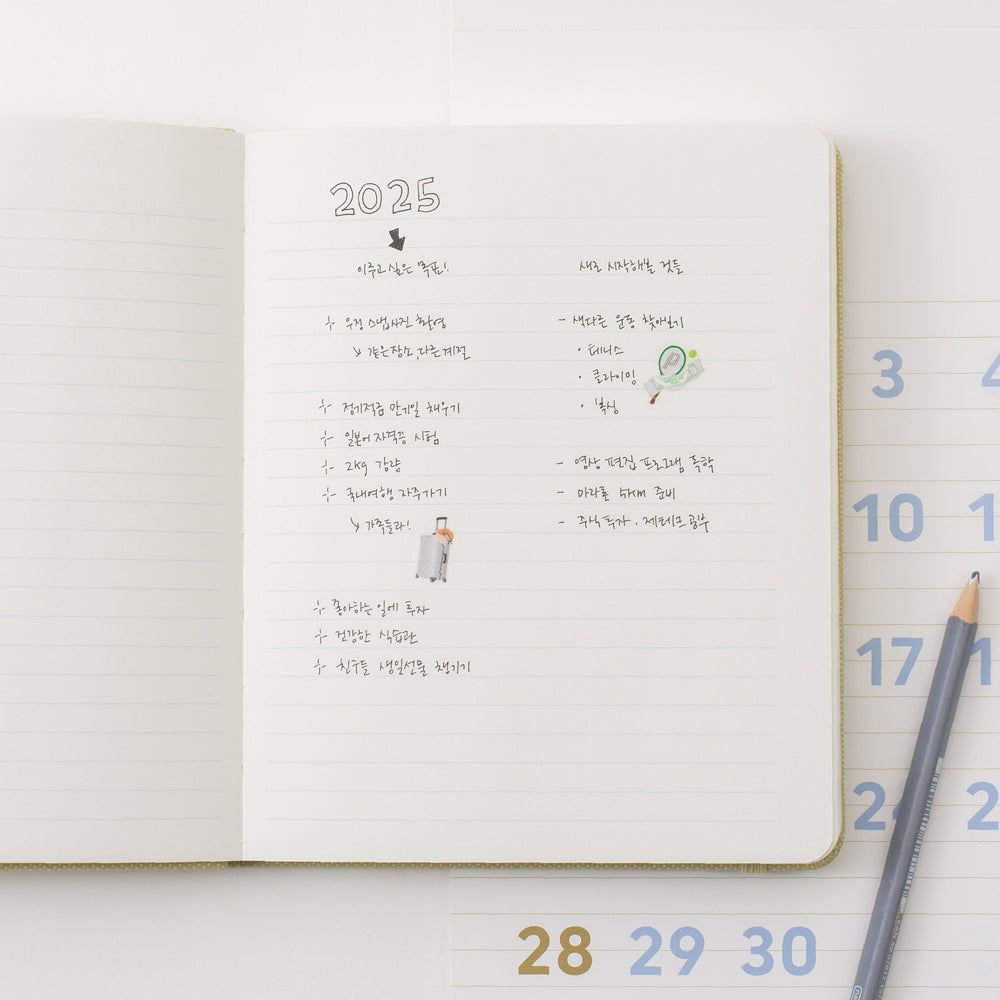 2025
이루고 싶은 목표!
우정 스냅사진 촬영
↘ 같은 장소, 다른 계절
정기적금 만기일 채우기
일본어 자격증 시험
2kg 감량
국내여행 자주가기
↘ 가족들과!
좋아하는 일에 투자
건강한 식습관
친구들 생일선물 챙기기
새로 시작해볼 것들
- 색다른 운동 찾아보기
· 테니스
· 클라이밍
· 복싱
- 영상 편집 프로그램 독학
- 마라톤 5km 준비
- 주식투자 · 제테크 공부
3
10
17
28 29 30